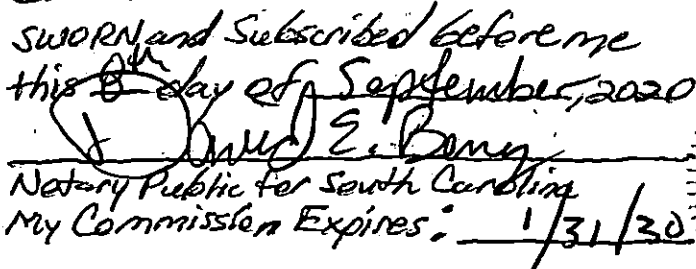 SWORN and Subscribed before me
this 8th day of September, 2020
David E.
Notary Public for South Carolina
My Commission Expires: 1/31/30